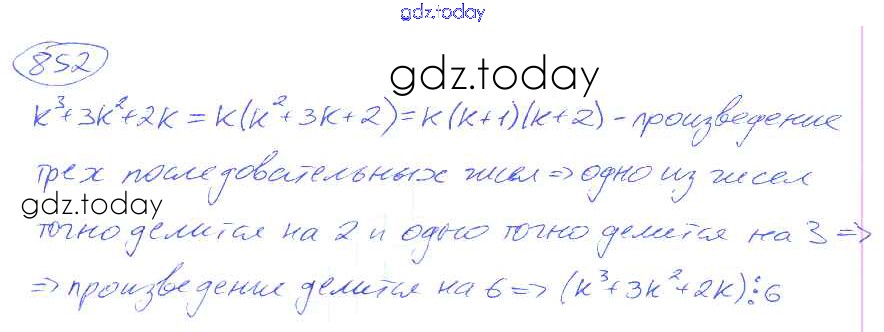 gdz.today
852
gdz.today
k³+3k²+2k = k(k²+3k+2) = k(k+1)(k+2) - произведение
трех последовательных чисел => одно из чисел
gdz.today
точно делится на 2 и одно точно делится на 3 =>
=> произведение делится на 6 => (k³+3k²+2k)⋮6